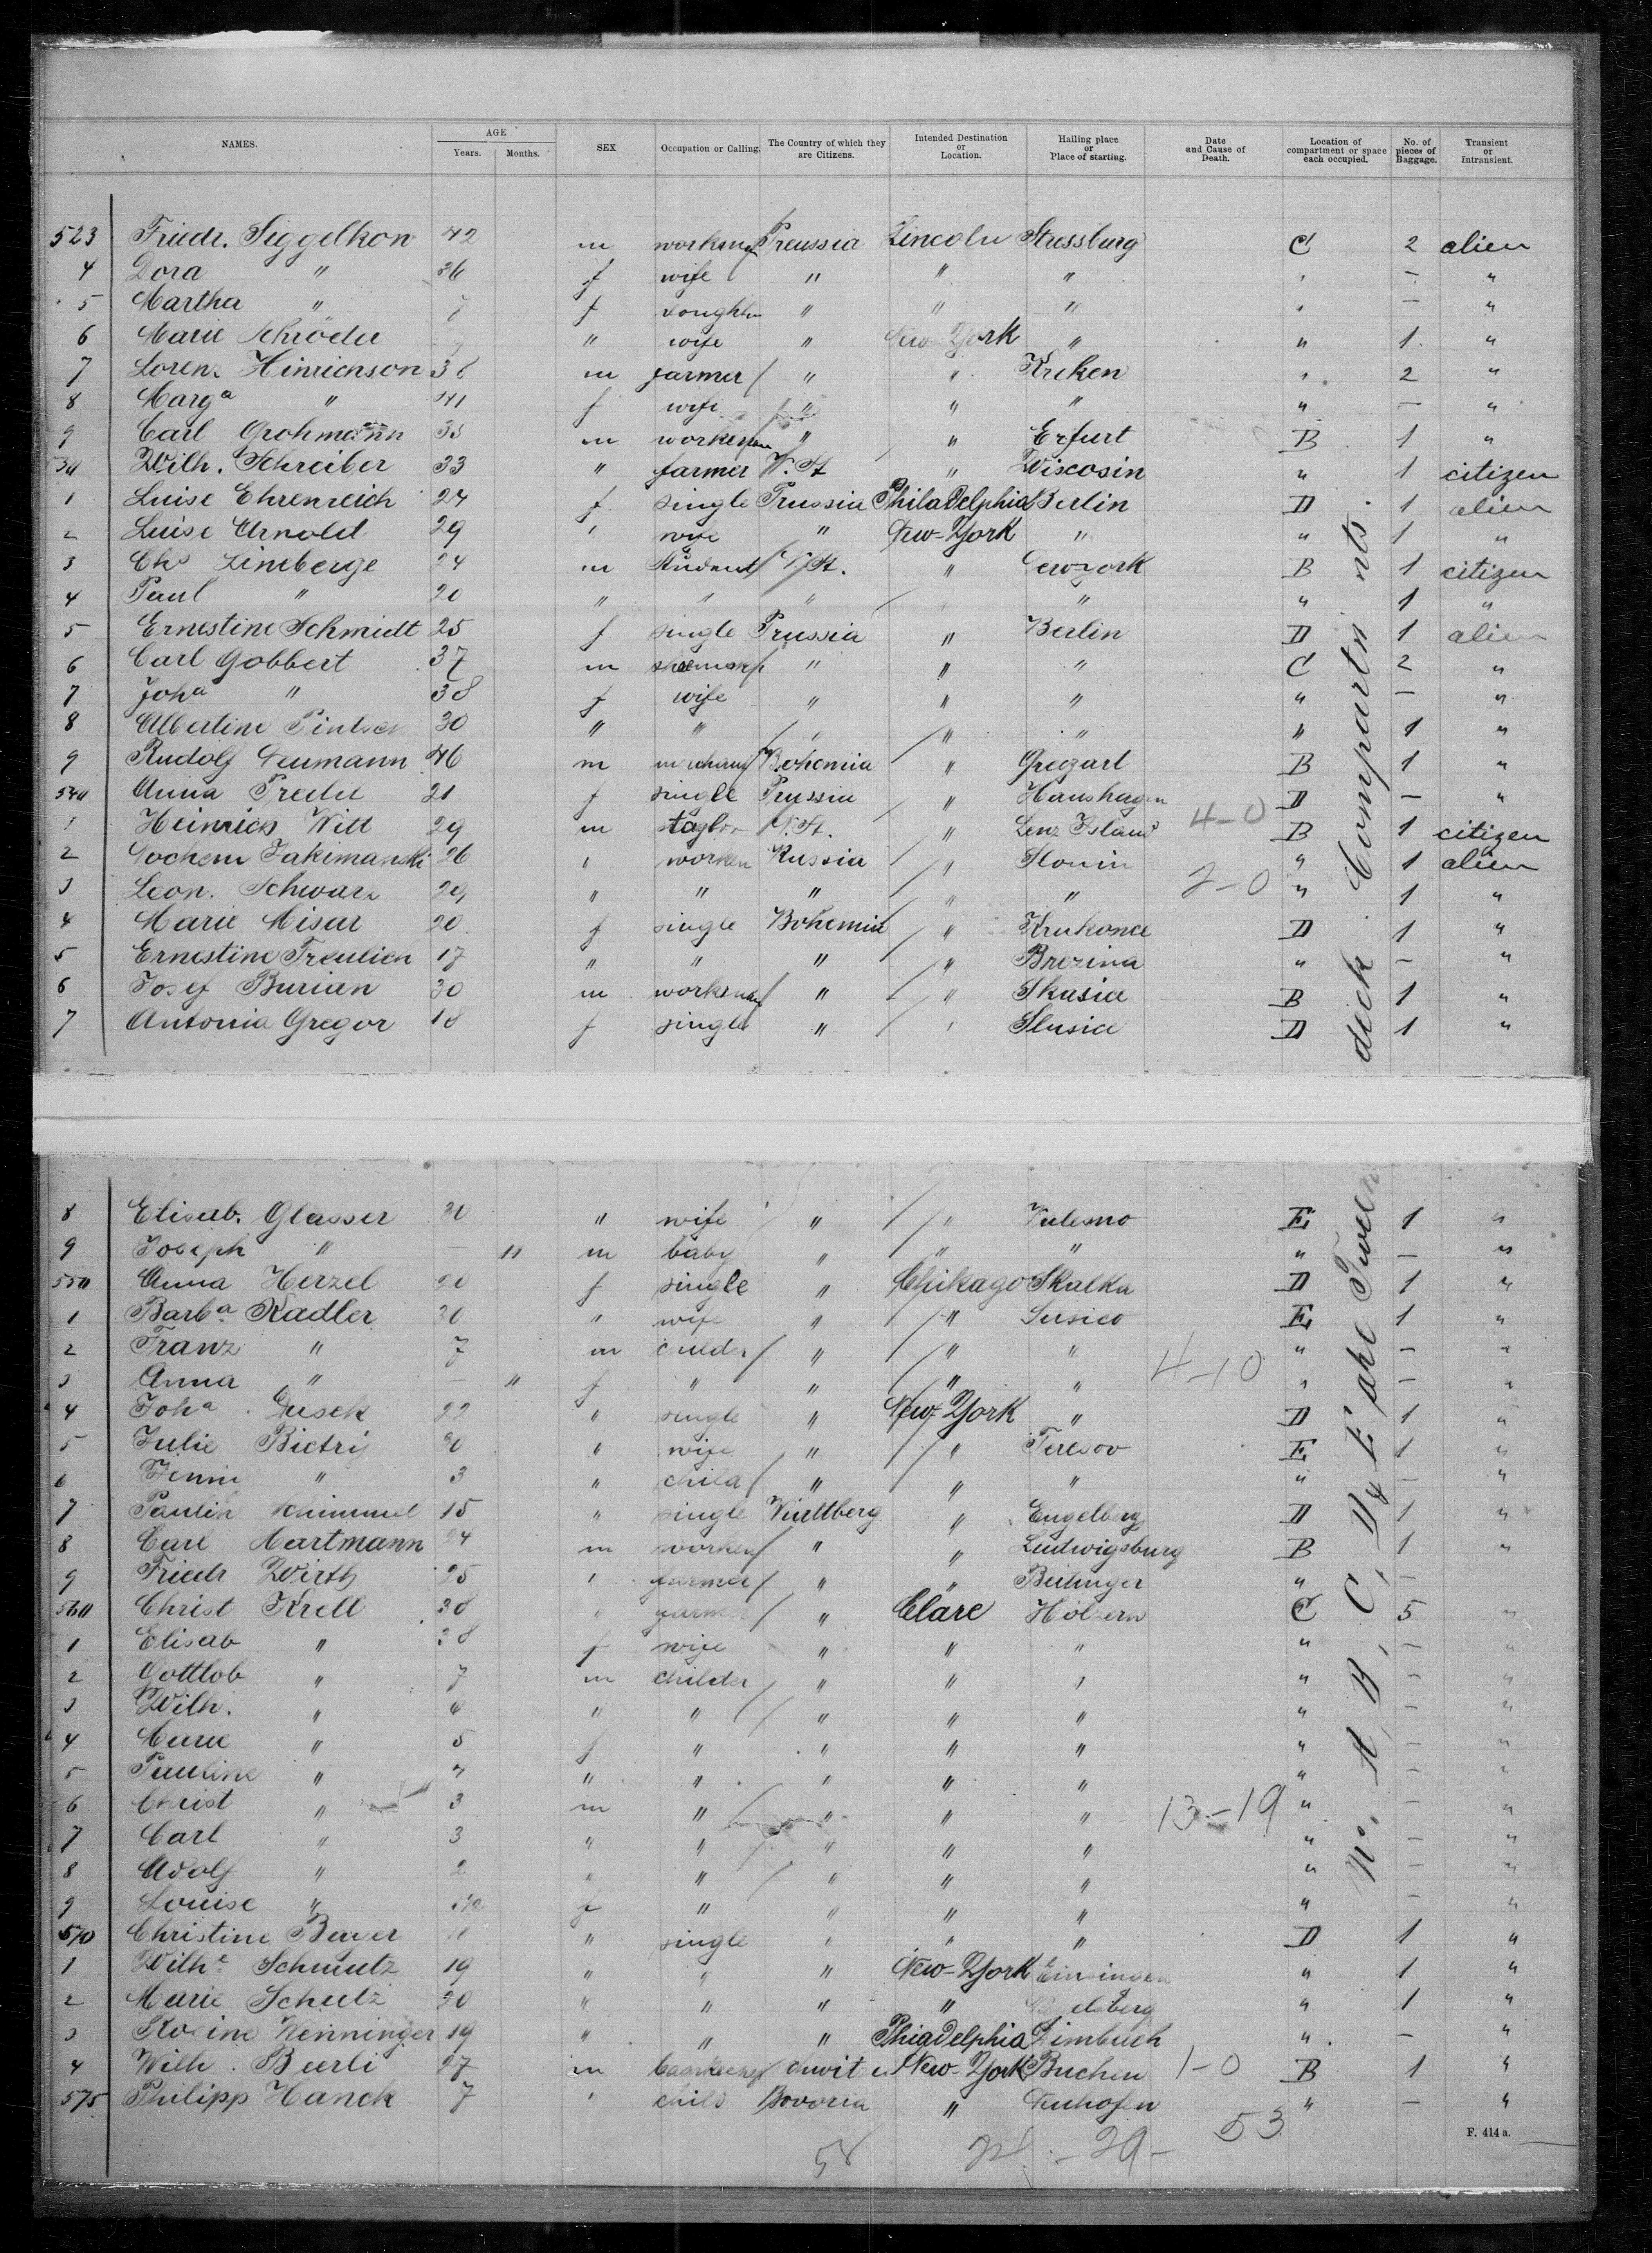 NAMES. AGE Years. Months. SEX Occupation or Calling. The Country of which they are Citizens. Intended Destination or Location. Hailing place or Place of starting. Date and Cause of Death. Location of compartment or space each occupied. No. of pieces of Baggage. Transient or Intransient.
523 Friedr. Siggelkon 42 m workman Preussia Lincoln Stressburg C 2 alien
4 Dora " 36 f wife " " " " – "
5 Martha " 7 f doughter " " " " – "
6 Marie Schröder " wife " New-York " " 1 "
7 Lorenz Hinrichson m farmer " " Kreken " 2 "
8 Marga " 41 f wife " " " " – "
9 Carl Grohmann m workman " " Erfurt B 1 "
Wilh. Schreiber 33 " farmer V. St " Wiscosin " 1 citizen
1 Luise Ehrenreich 24 f single Prussia Philadelphia Berlin D 1 alien
2 Luise Arnold 29 " wife " New-York " " 1 "
3 Chs Lineberge 24 m student V. St. " Newyork B 1 citizen
4 Paul " 20 " " " " " " 1 "
5 Ernestine Schmidt 25 f single Prussia " Berlin D 1 alien
6 Carl Gobbert 37 m " " " C 2 "
7 Joha " 38 f wife " " " " – "
8 Albertine 30 " " " " " " 1 "
9 Rudolf Neumann 46 m merchant Bohemia " B 1 "
540 Anna 21 f single Prussia " Hanshagen D – "
1 Heinrich Witt 29 m V. St. " Island 4-0 B 1 citizen
2 Jochem Jakimanski 26 " worken Russia " Slonin " 1 alien
3 Leon. Schwarz 29 " " " " " 2-0 " 1 "
4 Marie Misar 20 f single Bohemia " D 1 "
5 Ernestine Freulich 17 " " " " Brezina " – "
6 Josef Burian 30 m workman " " Skasia B 1 "
7 Antonia Gregor 18 f single " " Slusia D 1 "
8 Elisab. Glasser 30 " wife " " E 1 "
9 Joseph " – 11 m baby " " " " – "
550 Anna Herzel 20 f single " Chikago Skalka D 1 "
1 Barba Kadler 30 " wife " " Susico E 1 "
2 Franz " 7 m " " " " – "
3 Anna " – 11 f " " " " 4-10 " – "
4 Joha Dusek 22 " single " New-York " D 1 "
5 Julie 30 " wife " " Teresov E 1 "
6 " 3 " child " " " " – "
7 Paulin Schimmel 15 " single Württberg " Engelberg D 1 "
8 Carl Hartmann 24 m worken " " Ludwigsburg B 1 "
9 Friedr Wirth 25 " farmer " " " – "
560 Christ Krell 38 " farmer " Clare Holzern C 5 "
1 Elisab " 38 f wife " " " " – "
2 Gottlob " 7 m childer " " " " – "
3 Wilh. " 6 " " " " " " – "
4 Marie " 5 f " " " " " – "
5 Pauline " " " " " " " – "
6 Christ " 3 m " " " " 13-19 " – "
7 Carl " 3 " " " " " " – "
8 Adolf " 2 " " " " " " – "
9 Louise " f " " " " " – "
570 Christine Bayer " single " " " D 1 "
1 Wilhe Schmutz 19 " " " New-York " 1 "
2 Marie Schulz 20 " " " " " 1 "
3 Rosine Wenninger 19 " " " Phiadelphia " – "
4 Wilh. Beerli 27 m New-York Buchen 1-0 B 1 "
575 Philipp Hanck 7 " child Bovoria " Neuhofen " – "
58 29- 53
F. 414 a.
No. A, B, C, D & E are Tween deck Compartments.